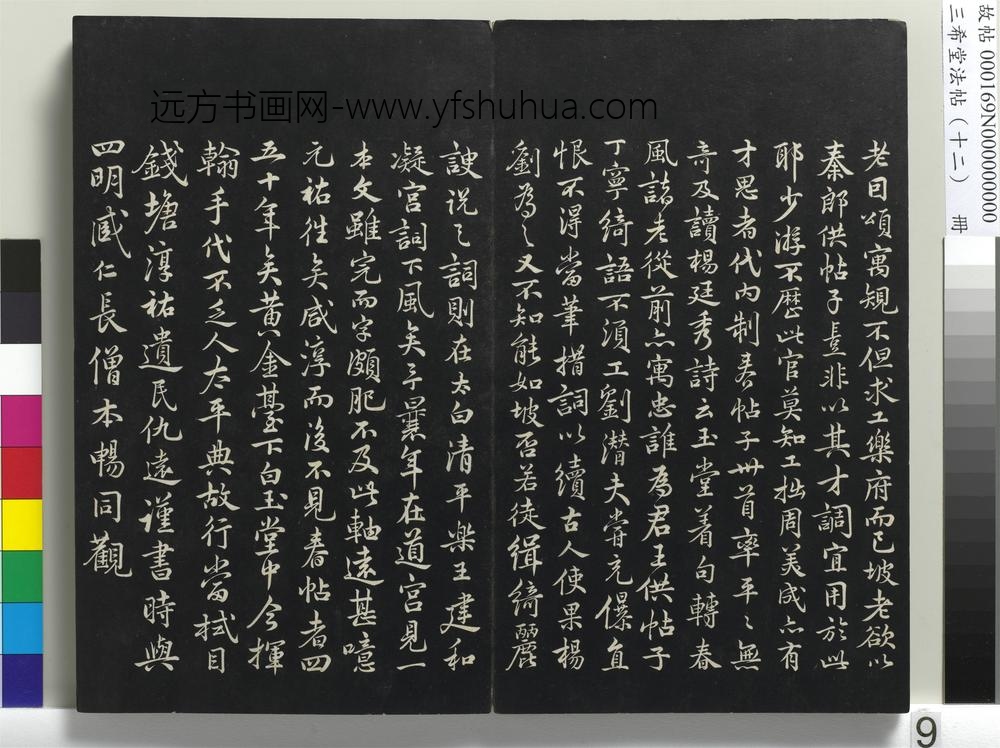 老因頌寓規不但求工樂府而已坡老欲以
秦郎供帖子豈非以其才調宜用於此
耶少游不歷此官莫知工拙周美成亦有
才思者代内制春帖子卅首率平〻無
奇及讀楊廷秀詩云玉堂着句轉春
風諸老從前亦寓忠誰為君王供帖子
丁寧綺語不須工劉潛夫嘗充儤直
恨不得當筆措詞以續古人使果楊
劉為之又不知能如坡否若徒緝綺麗
諛說之詞則在太白清平樂王建和
凝宮詞下風矣予曩年在道宮見一
本文雖完而字頗肥不及此軸遠甚噫
元祐往矣咸淳而後不見春帖者四
五十年矣黃金臺下白玉堂中今揮
翰手代不乏人太平典故行當拭目
錢塘淳祐遺民仇遠謹書時與
四明戚仁長僧本暢同觀
远方书画网-www.yfshuhua.com
故帖 000169N000000000
三希堂法帖（十二） 冊
9